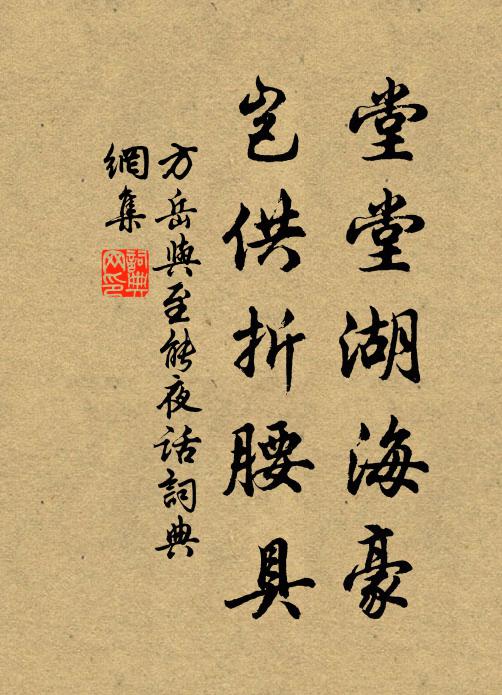 堂堂湖海豪
豈供折腰具
方岳與至能夜话詞典
網集
詞典
网印